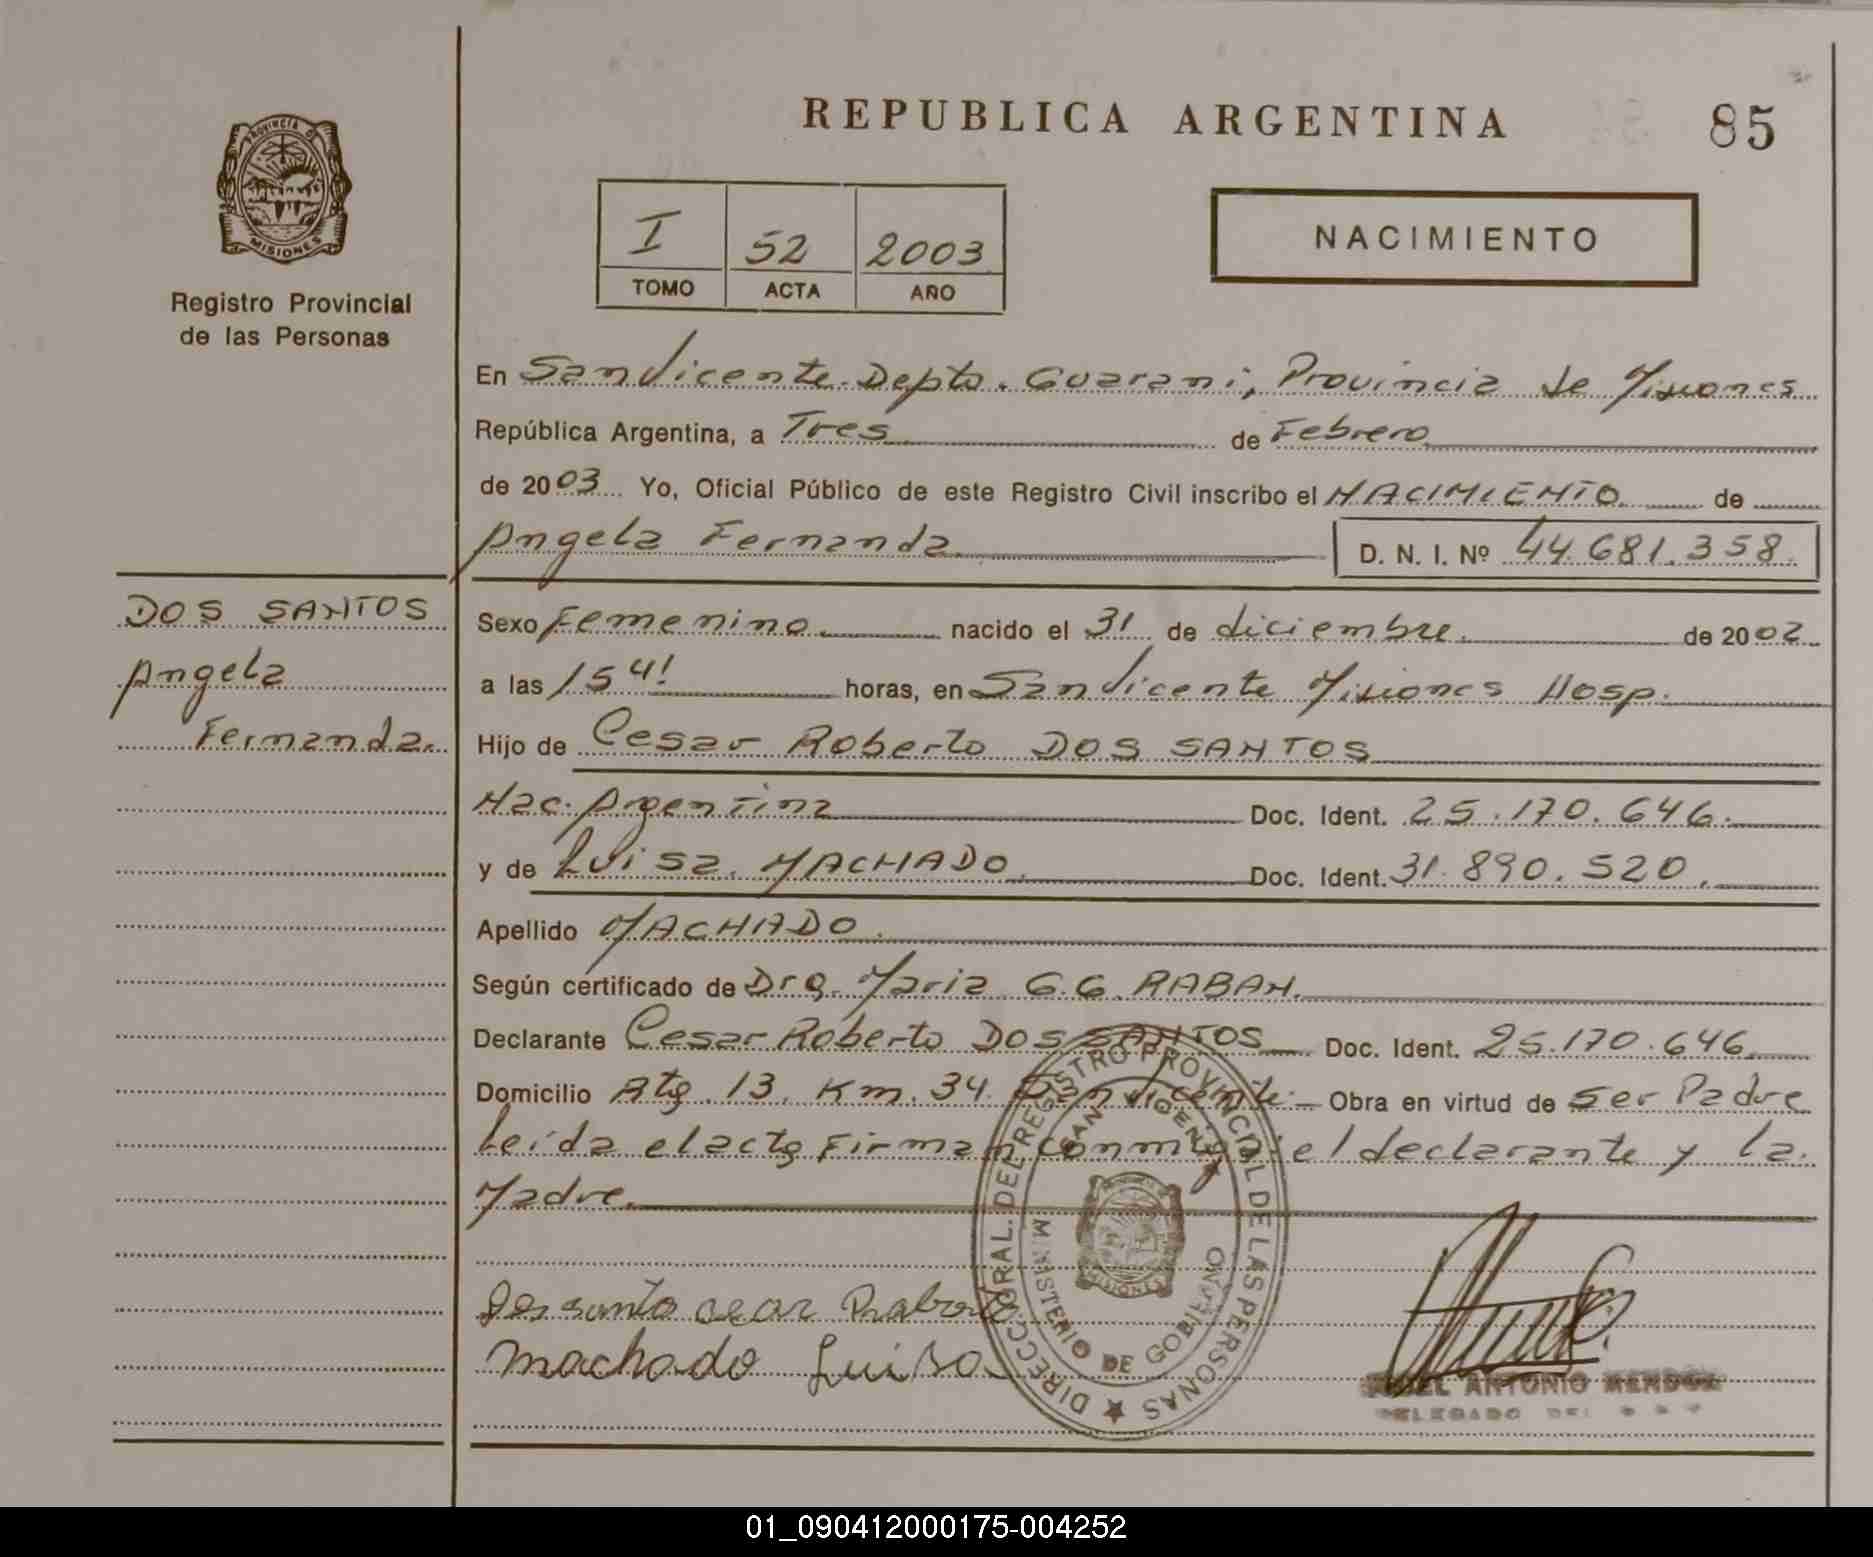 REPUBLICA ARGENTINA
85
PROVINCIA D
MISIONES
Registro Provincial
de las Personas
I 52 2003
TOMO ACTA AÑO
NACIMIENTO
En San Vicente. Depto. Guarani, Provincia de Misiones
República Argentina, a Tres de Febrero
de 2003 Yo, Oficial Público de este Registro Civil inscribo el NACIMIENTO de
Angela Fernanda D. N. I. Nº 44.681.358.
DOS SANTOS
Angela
Fernanda.
Sexo Femenino. nacido el 31 de diciembre. de 2002
a las 15 41 horas, en San Vicente Misiones Hosp.
Hijo de Cesar Roberto DOS SANTOS
Nac. Argentina Doc. Ident. 25.170.646.
y de Luisa. MACHADO. Doc. Ident. 31.890.520.
Apellido MACHADO.
Según certificado de Dra. Maria G.G. RABAN.
Declarante Cesar Roberto DOS SANTOS Doc. Ident. 25.170.646.
Domicilio Atg. 13. Km. 34. San Vicente.- Obra en virtud de Ser Padre
Leída el acta Firman conmigo el declarante y la.
Madre.
Machado Luisa
DIRECC. GRAL. DEL REGISTRO PROVINCIAL DE LAS PERSONAS
SAN VICENTE
MINISTERIO DE GOBIERNO
MISIONES
ANTONIO MENDOZ
DELEGADO DEL
01_090412000175-004252